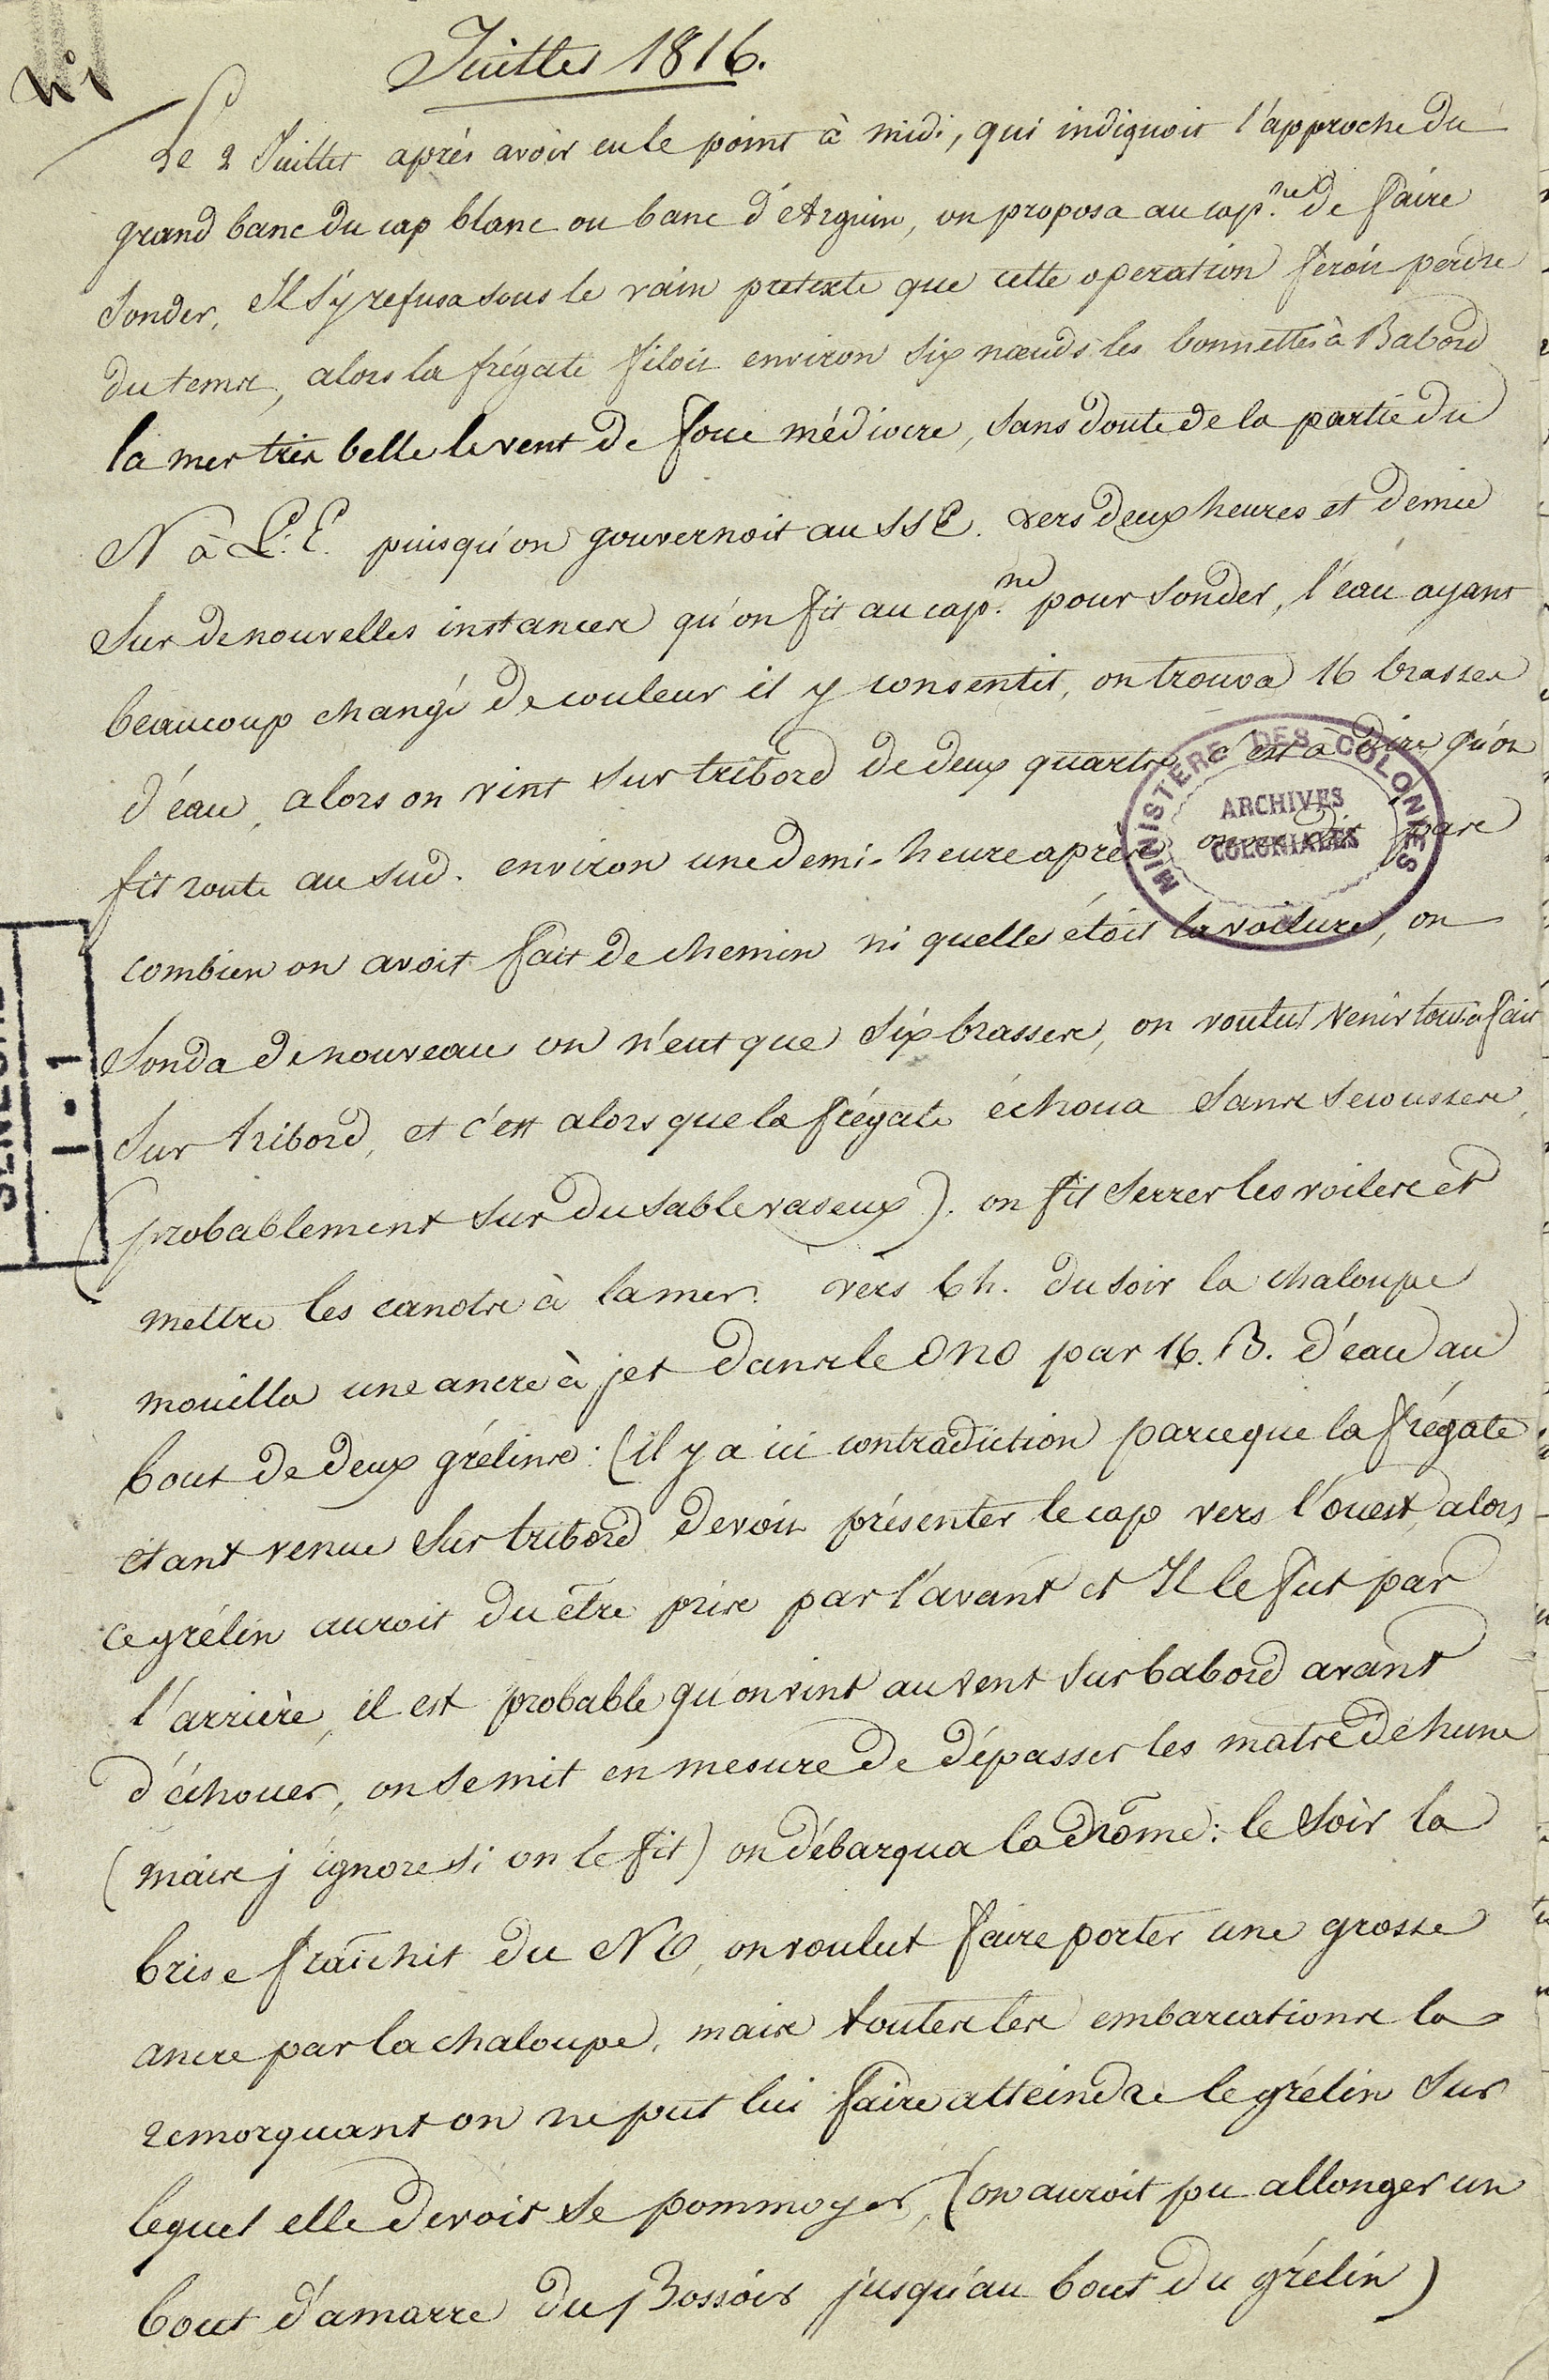 N° 1
Juillet 1816.
Le 2 Juillet après avoir eu le point à midi, qui indiquoit l'approche du
grand banc du cap blanc ou banc d'Arguin, on proposa au cap.ne de faire
sonder. Il s'y refusa sous le vain pretexte que cette operation feroit perdre
du tems, alors la frégate filoit environ six nœuds les bonnettes à Babord
la mer très belle le vent de force médiocre, sans doute de la partie du
N à L'E. puisqu'on gouvernoit au SSE. vers deux heures et demie
Sur de nouvelles instances qu'on fit au cap.ne pour sonder, l'eau ayant
beaucoup changé de couleur il y consentit, on trouva 16 brasses
d'eau, alors on vint sur tribord de deux quarts, c'est à dire qu'on
fit route au sud. environ une demi-heure après on ne dit pas
combien on avoit fait de chemin ni quelle étoit la voilure, on
sonda de nouveau on n'eut que six brasses, on voulut venir tout à fait
sur tribord, et c'est alors que la frégate échoua sans secousses,
(probablement sur du sable vaseux). on fit serrer les voiles et
mettre les canots à la mer. vers 6 h. du soir la chaloupe
mouilla une ancre à jet dans le ONO par 16. B. d'eau au
bout de deux grélins: (il y a ici contradiction parceque la frégate
étant venue sur tribord devoit présenter le cap vers l'ouest, alors
ce grélin auroit du être pris par l'avant et Il le fut par
l'arrière, il est probable qu'on vint au vent sur babord avant
d'échouer, on se mit en mesure de dépasser les mats de hune
(mais j'ignore si on le fit) on débarqua la drôme: le soir la
brise fraîchit du NO, on voulut faire porter une grosse
ancre par la chaloupe, mais toutes les embarcations la
remorquant on ne put lui faire atteindre le grélin sur
lequel elle devoit se pommoyer, (on auroit pu allonger un
bout d'amarre du Bossoir jusqu'au bout du grélin)
MINISTERE DES COLONIES
ARCHIVES
COLONIALES
1 • 1